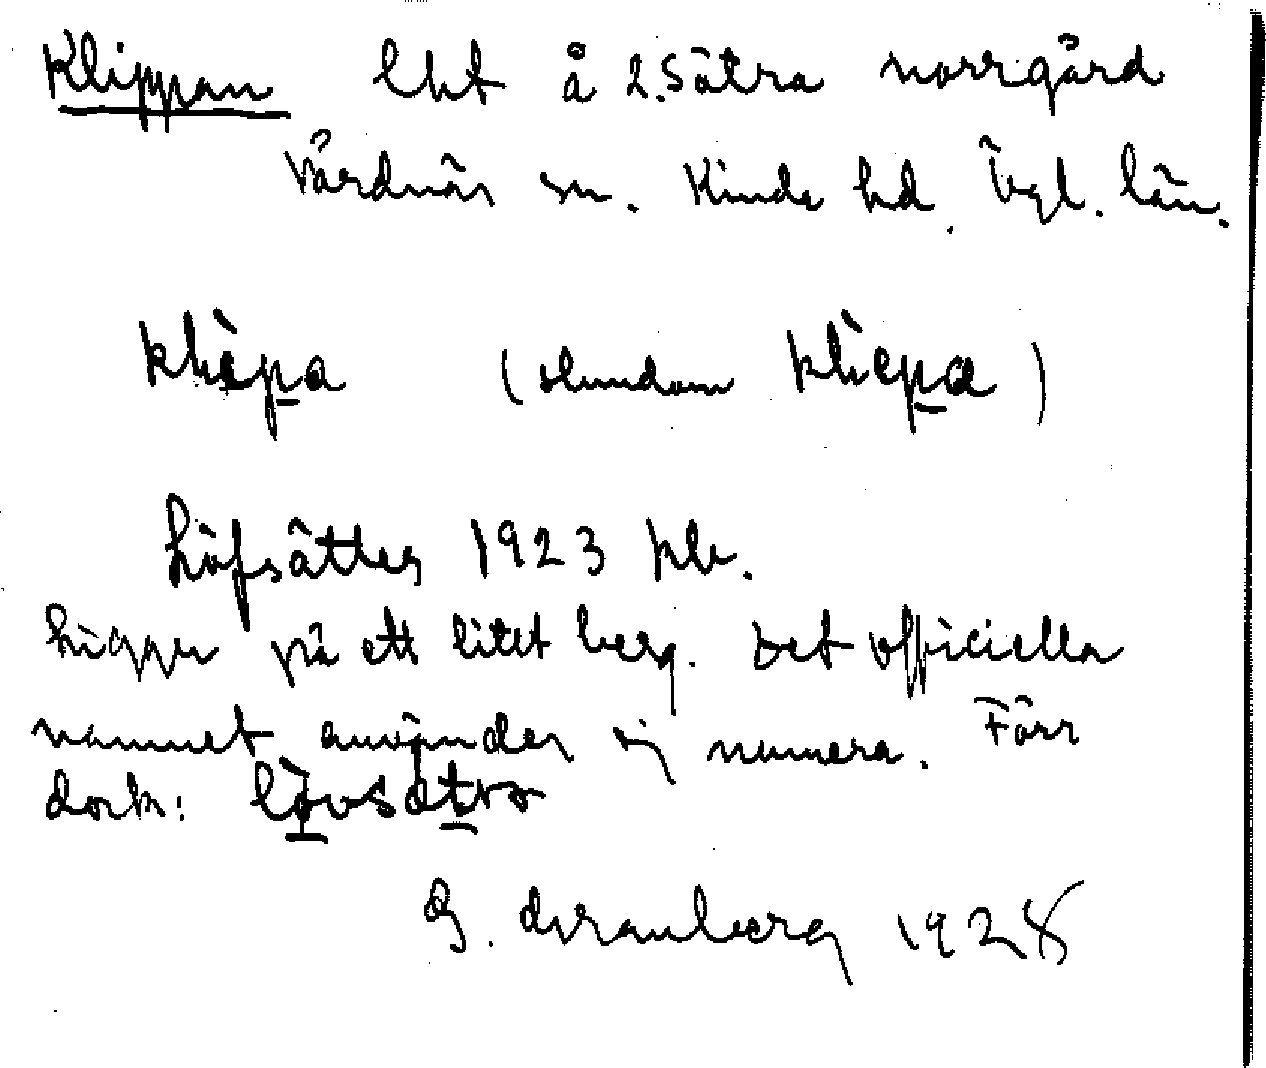 Klippan lht å 2. Sätra norrgård
Vårdnäs sn. Kinda hd. Ögl. län.
klìpa (stundom klìepa)
Löfsätter 1923 kb.
Ligger på ett litet berg. Det officiella
namnet användes ej numera. Förr
dock: lövsätra
G. Franberg 1928